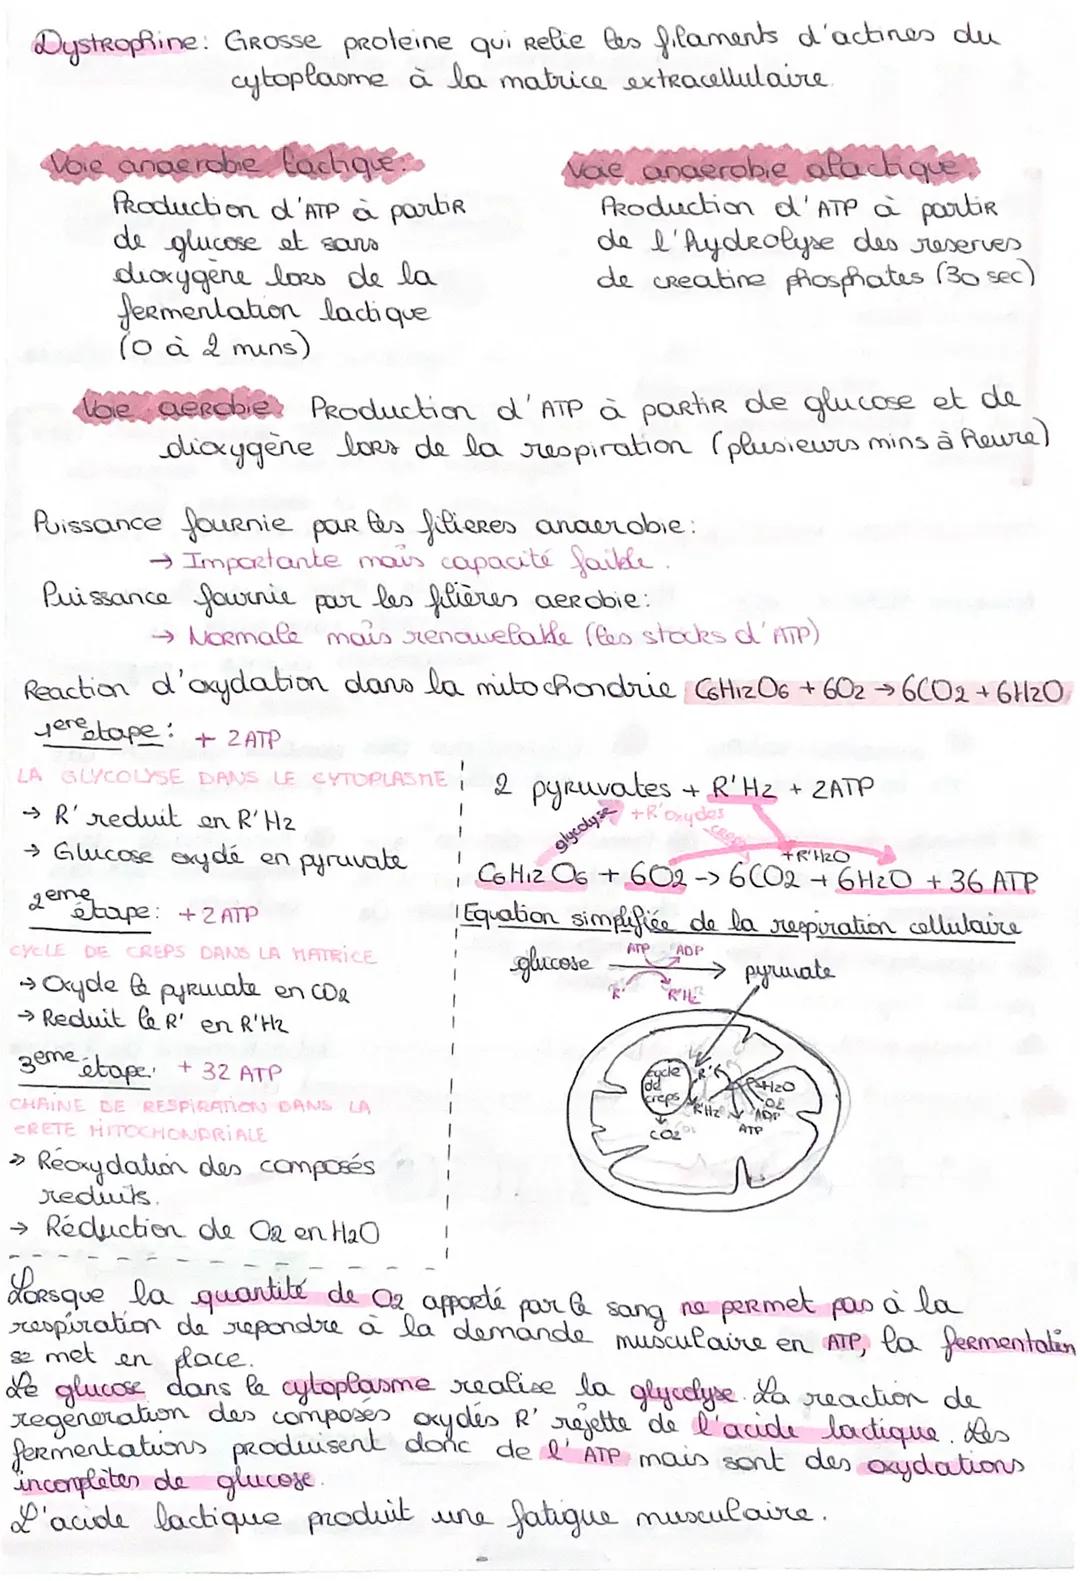 Dystrophine: Grosse proteine qui relie les filaments d'actines du
cytoplasme à la matrice extracellulaire.
Voie anaerobie lactique:
Production d'ATP à partir
de glucose et sans
dioxygène lors de la
fermentation lactique
(0 à 2 mins)
Voie anaerobie alactique:
Production d'ATP à partir
de l'hydrolyse des reserves
de creatine phosphates (30 sec)
Voie aerobie: Production d'ATP à partir de glucose et de
dioxygène lors de la respiration (plusieurs mins à heure)
Puissance fournie par les filieres anaerobie:
→ Importante mais capacité faible.
Puissance fournie par les filières aerobie:
→ Normale mais renouvelable (les stocks d'ATP)
Reaction d'oxydation dans la mitochondrie C6H12O6 + 6O2 → 6CO2 + 6H2O
1ere etape: + 2 ATP
LA GLYCOLYSE DANS LE CYTOPLASME
→ R' reduit en R'H2
→ Glucose oxydé en pyruvate
2eme étape: + 2 ATP
CYCLE DE CREPS DANS LA MATRICE
→ Oxyde le pyruvate en CO2
→ Reduit le R' en R'H2
3eme étape: + 32 ATP
CHAINE DE RESPIRATION DANS LA
CRETE MITOCHONDRIALE
→ Réoxydation des composés
reduits.
→ Réduction de O2 en H2O
2 pyruvates + R'H2 + 2ATP
glycolyse
+R'oxydes
+R'H2O
C6H12O6 + 6O2 -> 6CO2 + 6H2O + 36 ATP
Equation simplifiée de la respiration cellulaire
ATP ADP
glucose → pyruvate
R' R'H2
cycle
de
creps
R'
R'H2
H2O
O2
ADP
ATP
CO2
Lorsque la quantité de O2 apporté par le sang ne permet pas à la
respiration de repondre à la demande musculaire en ATP, la fermentation
se met en place.
Le glucose dans le cytoplasme realise la glycolyse. La reaction de
regeneration des composés oxydés R' rejette de l'acide lactique. Les
fermentations produisent donc de l'ATP mais sont des oxydations
incomplètes de glucose.
L'acide lactique produit une fatigue musculaire.